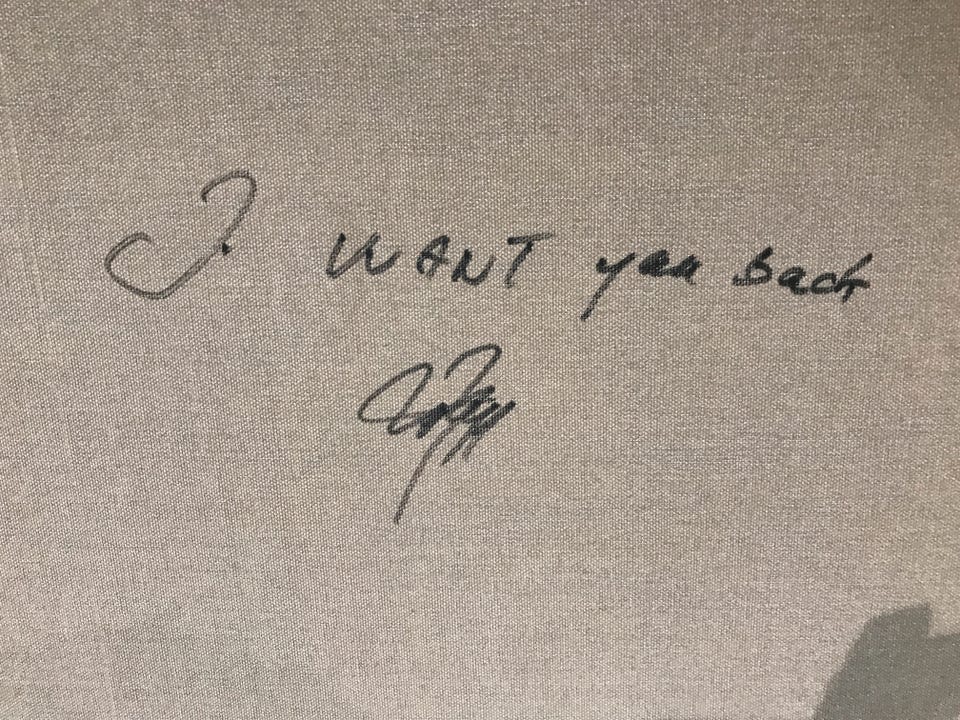 I WANT you back